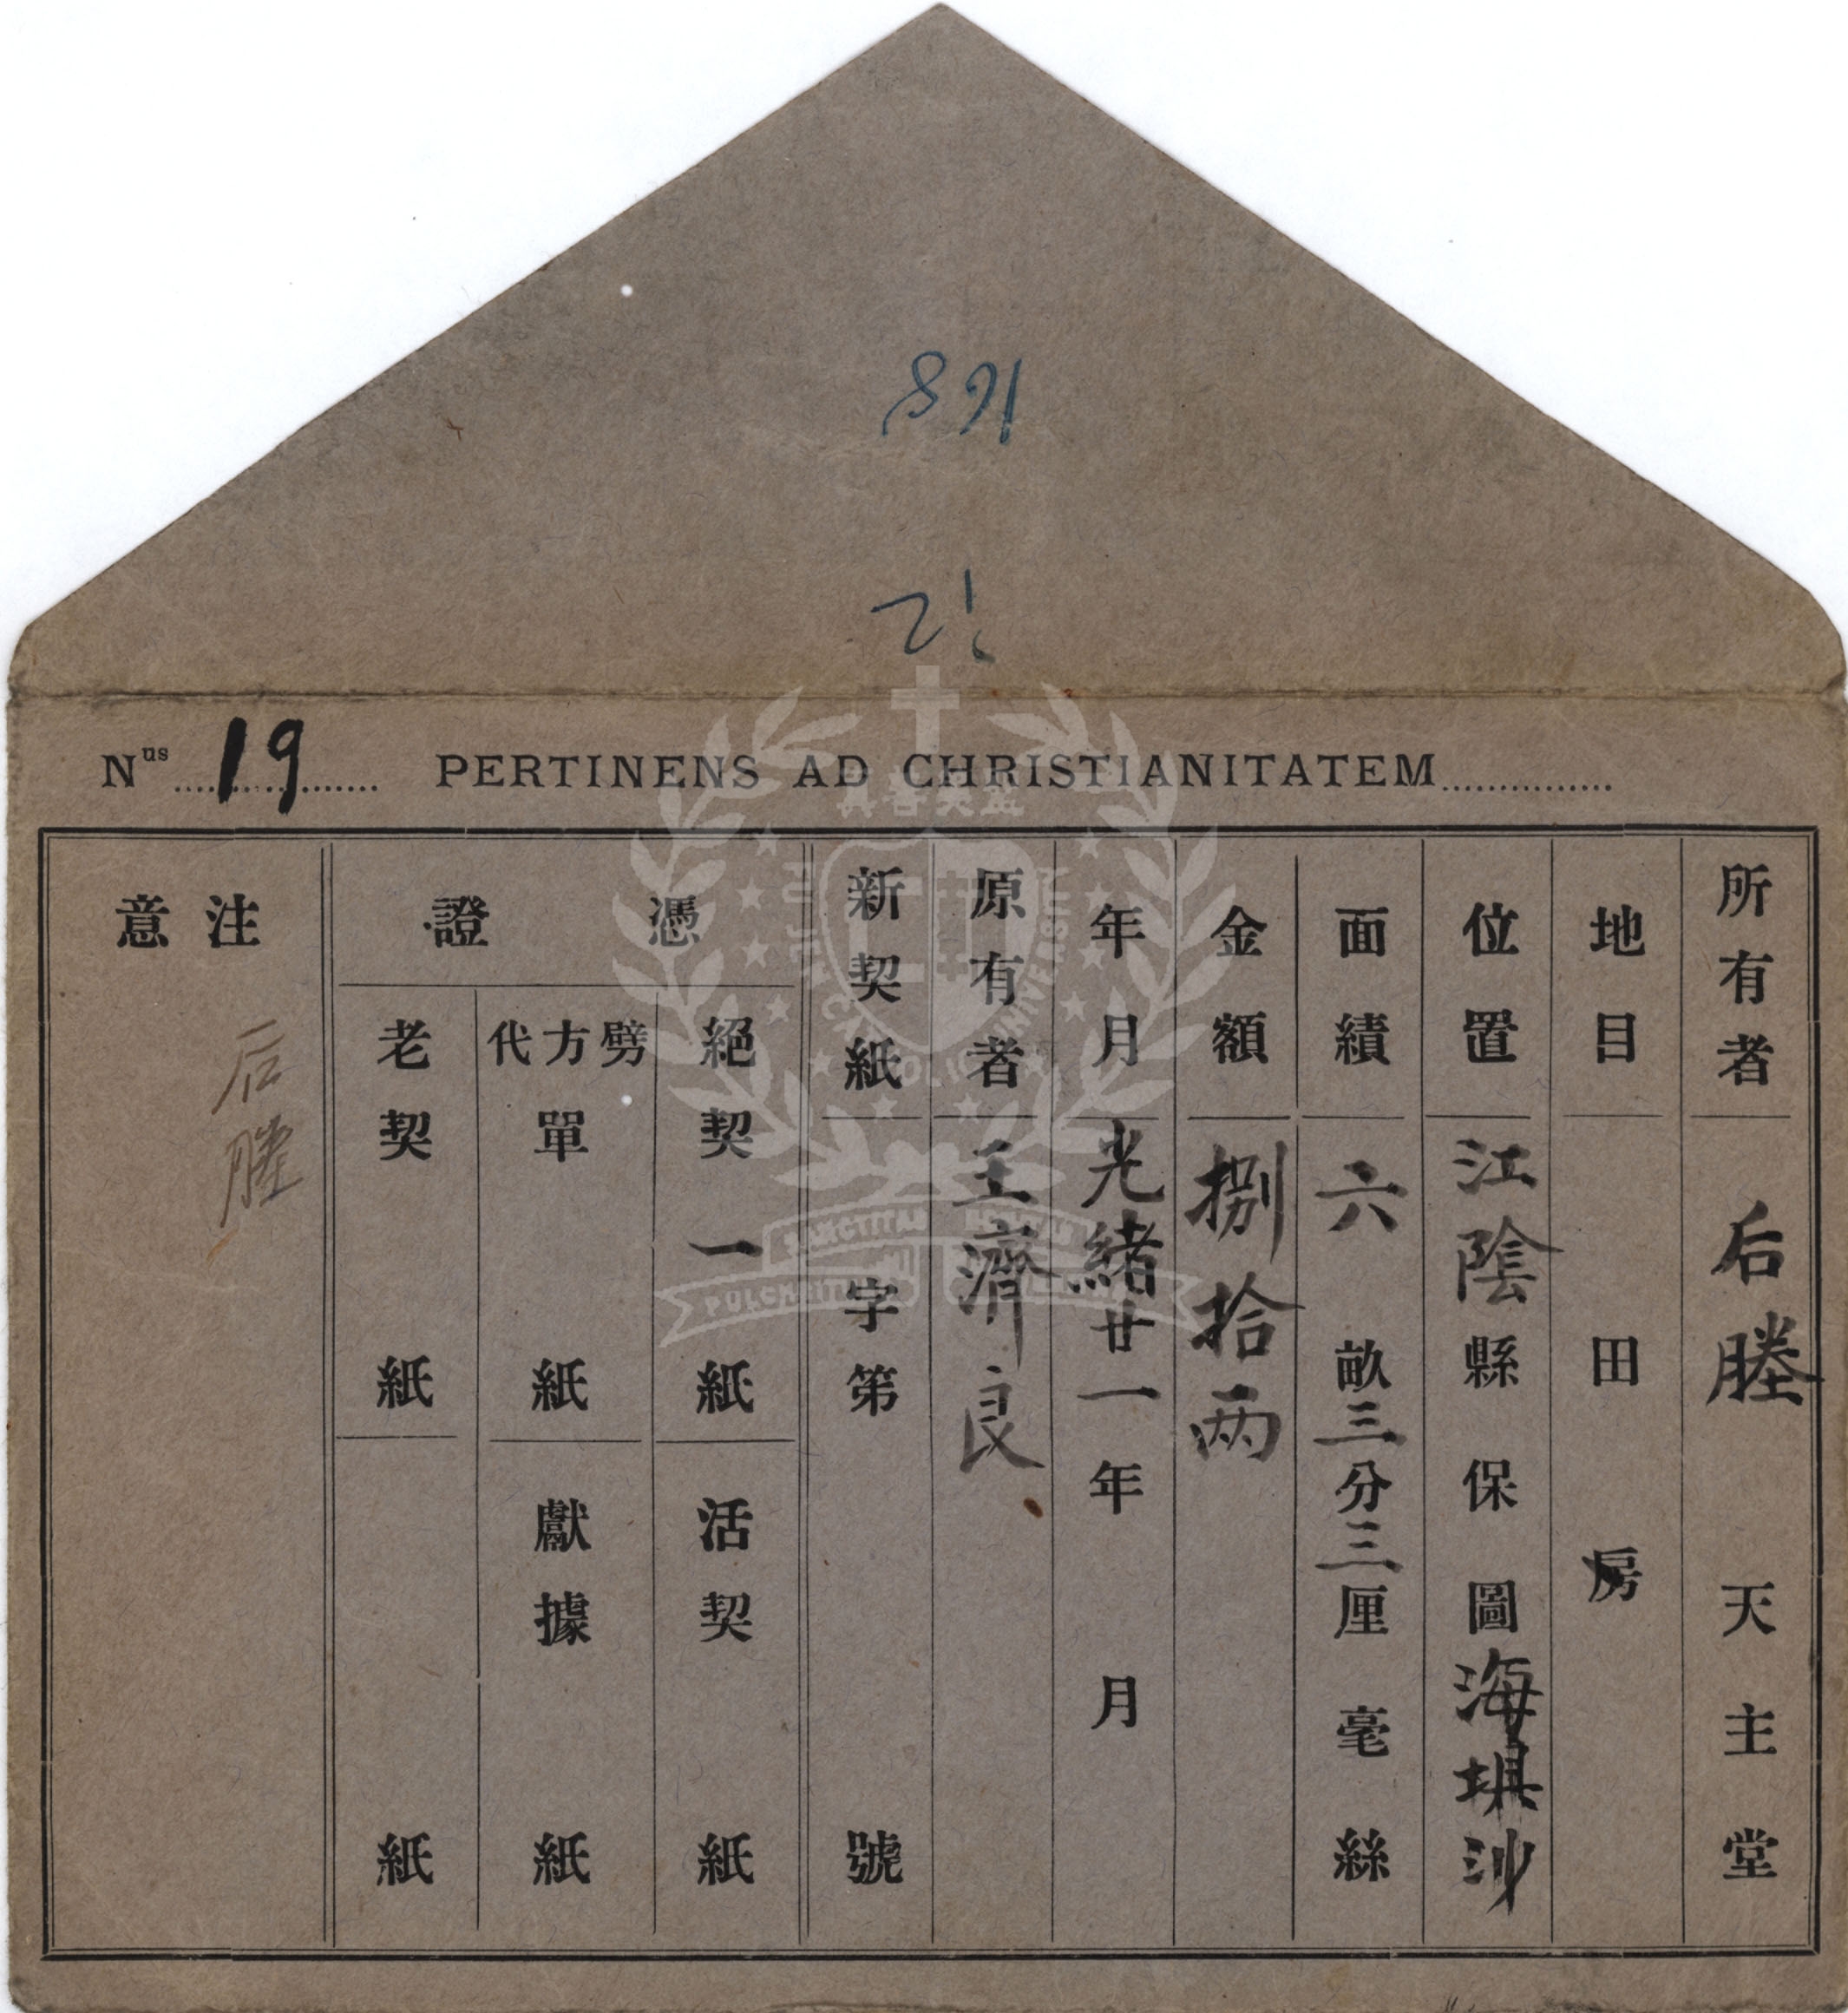 168
12
Nus 19 PERTINENS AD CHRISTIANITATEM
所有者 后塍 天主堂
地目 田 房
位置 江陰縣保圖海壩沙
面績 六畝三分三厘毫絲
金額 捌拾兩
年月 光緒廿一年 月
原有者 王濟良
新契紙 字第 號
憑證
絕契 一紙
活契 紙
劈方代單 紙
獻據 紙
老契 紙
紙
注意
后塍
真善美聖